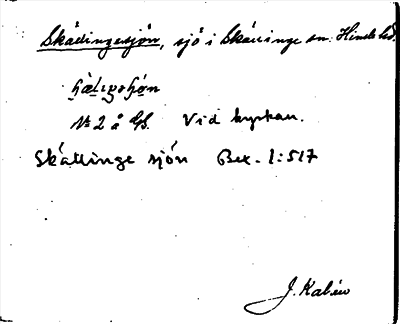 Skällingesjön, sjö i Skällinge sn. Himle hd.
No 2 å GS. Vid kyrkan.
Skällinge sjön Bex. 1:517
J. Kalén